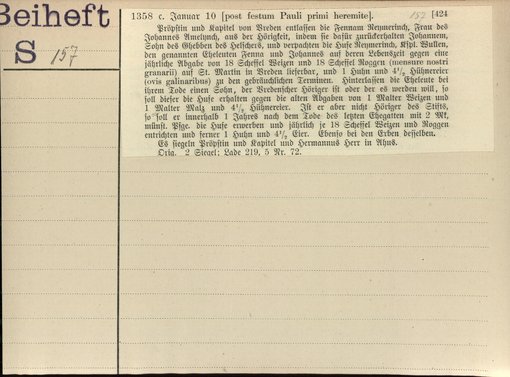 Beiheft
S 157
7
1358 c. Januar 10 [post festum Pauli primi heremite]. 157 [424
Pröpstin und Kapitel von Vreden entlassen die Fennam Reymerinch, Frau des
Johannes Amelynch, aus der Hörigkeit, indem sie dafür zurückerhalten Johannem,
Sohn des Ghebben des Helschers, und verpachten die Hufe Reymerinch, Kspl. Wullen,
den genannten Eheleuten Fenna und Johannes auf deren Lebenszeit gegen eine
jährliche Abgabe von 18 Scheffel Weizen und 18 Scheffel Roggen (mensure nostri
granarii) auf St. Martin in Vreden lieferbar, und 1 Huhn und 4½ Hühnereier
(ovis galinaribus) zu den gebräuchlichen Terminen. Hinterlassen die Eheleute bei
ihrem Tode einen Sohn, der Vredenscher Höriger ist oder der es werden will, so
soll dieser die Hufe erhalten gegen die alten Abgaben von 1 Malter Weizen und
1 Malter Malz und 4½ Hühnereier. Ist er aber nicht Höriger des Stifts,
so soll er innerhalb 1 Jahres nach dem Tode des letzten Ehegatten mit 2 Mk.
münst. Pfge. die Hufe erwerben und jährlich je 18 Scheffel Weizen und Roggen
entrichten und ferner 1 Huhn und 4½ Eier. Ebenso bei den Erben desselben.
Es siegeln Pröpstin und Kapitel und Hermannus Herr in Ahus.
Orig. 2 Siegel; Lade 219, 5 Nr. 72.